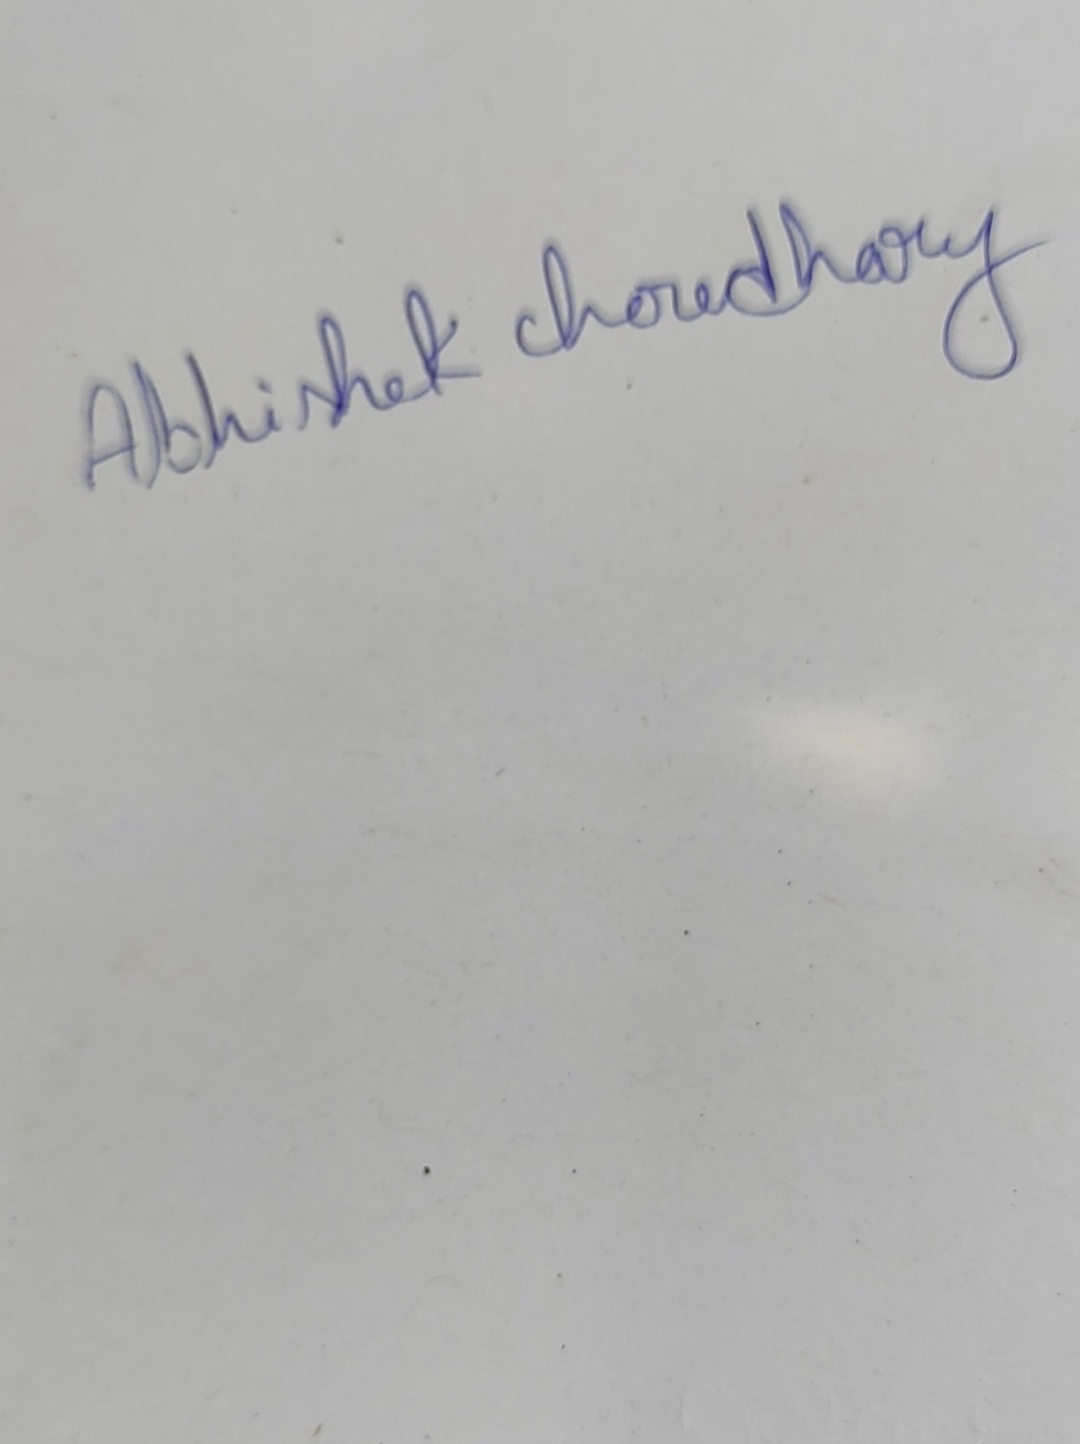 Abhishek choudhary